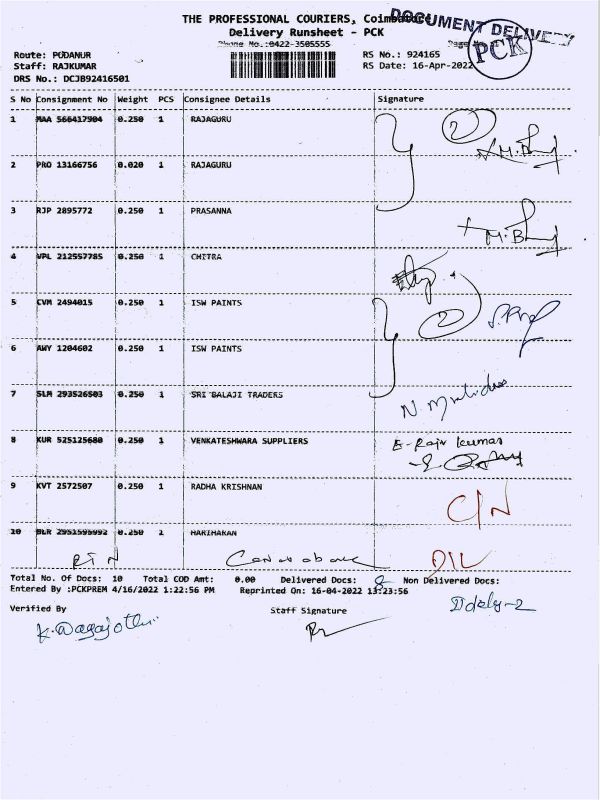 THE PROFESSIONAL COURIERS, Coimbatore
DOCUMENT DELIVERY
Delivery Runsheet - PCK
Phone No.:0422-3505555
PCK
Route: PODANUR
RS No.: 924165
Staff: RAJKUMAR
RS Date: 16-Apr-2022
DRS No.: DCJB92416501
S No Consignment No Weight PCS Consignee Details Signature
1 MAA 566417904 0.250 1 RAJAGURU
2 PRO 13166756 0.020 1 RAJAGURU
3 RJP 2895772 0.250 1 PRASANNA
4 VPL 212557785 0.250 1 CHITRA
5 CVM 2494015 0.250 1 ISW PAINTS
6 AWY 1204602 0.250 1 ISW PAINTS
7 SLM 293526503 0.250 1 SRI BALAJI TRADERS
8 KUR 525125680 0.250 1 VENKATESHWARA SUPPLIERS
E-Raju kumar
9 KVT 2572507 0.250 1 RADHA KRISHNAN
C/N
10 BLR 2951595992 0.250 HARIHARAN
RTN D/L
Total No. Of Docs: 10 Total COD Amt: 0.00 Delivered Docs: 8 Non Delivered Docs:
Entered By :PCKPREM 4/16/2022 1:22:56 PM Reprinted On: 16-04-2022 13:23:56
Verified By Staff Signature